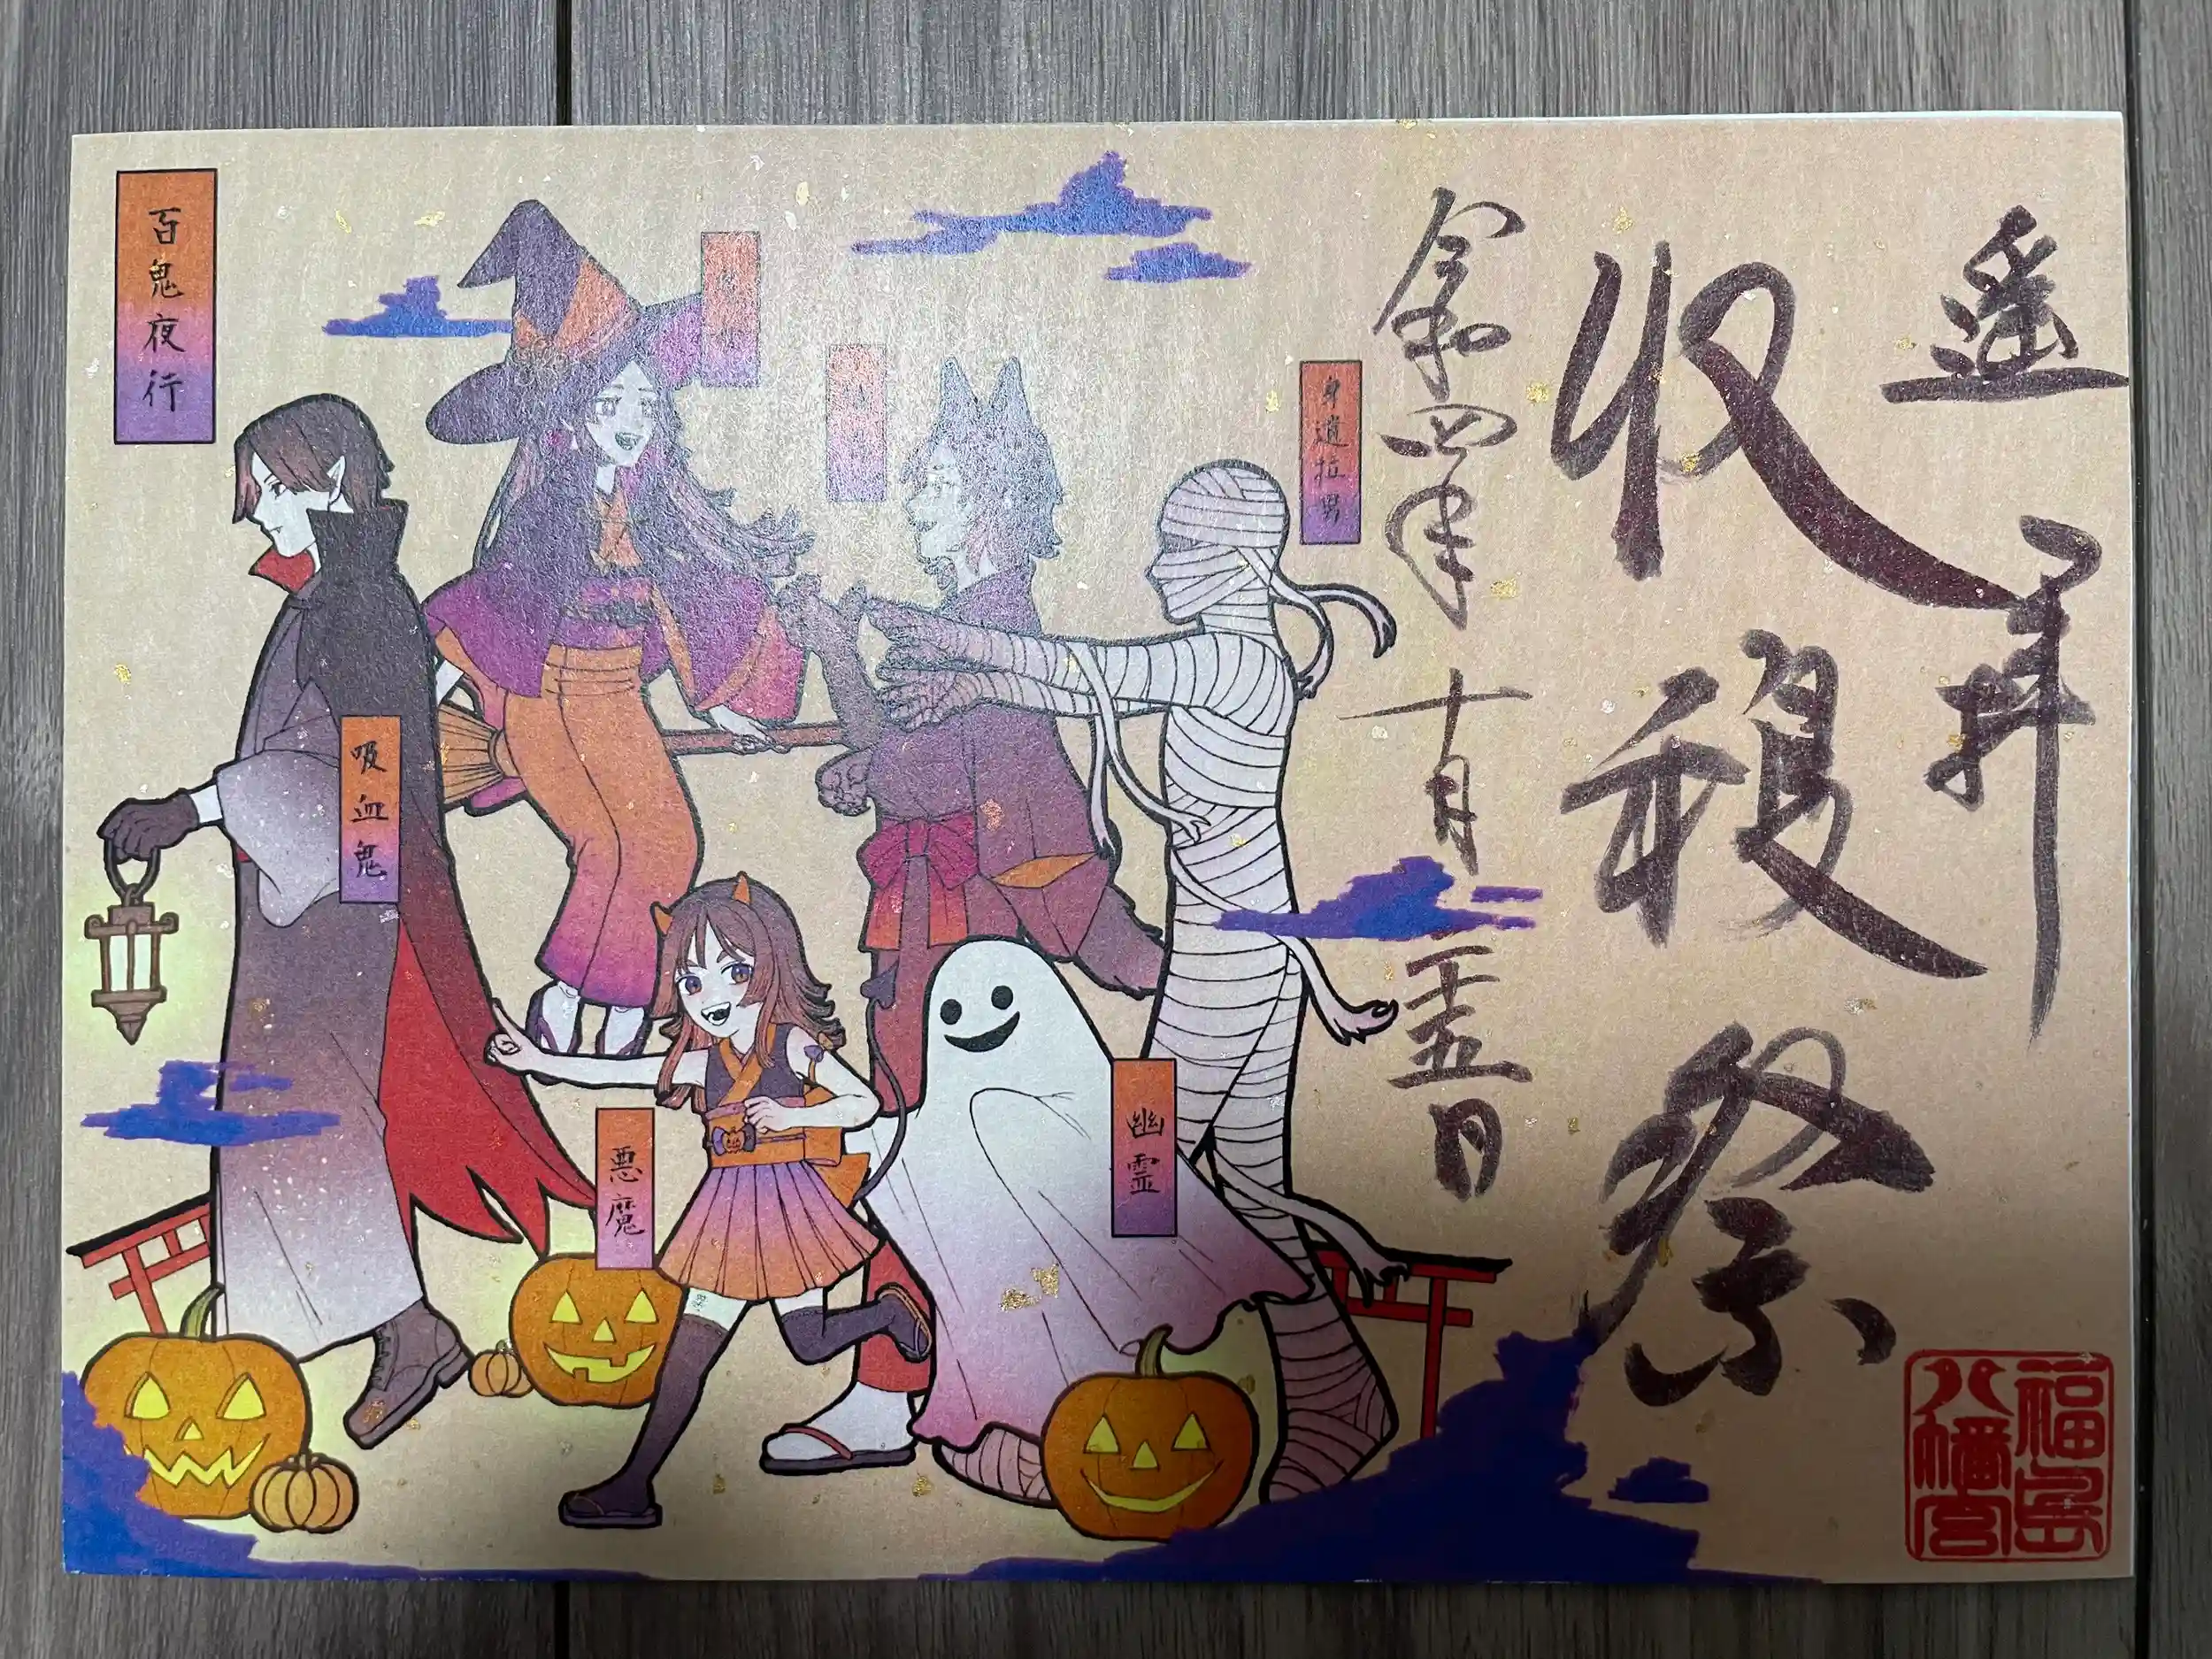 遥拝
収穫祭
令和四年十月二十五日
福島
八幡宮
身遺拉男
幽霊
悪魔
吸血鬼
百鬼夜行